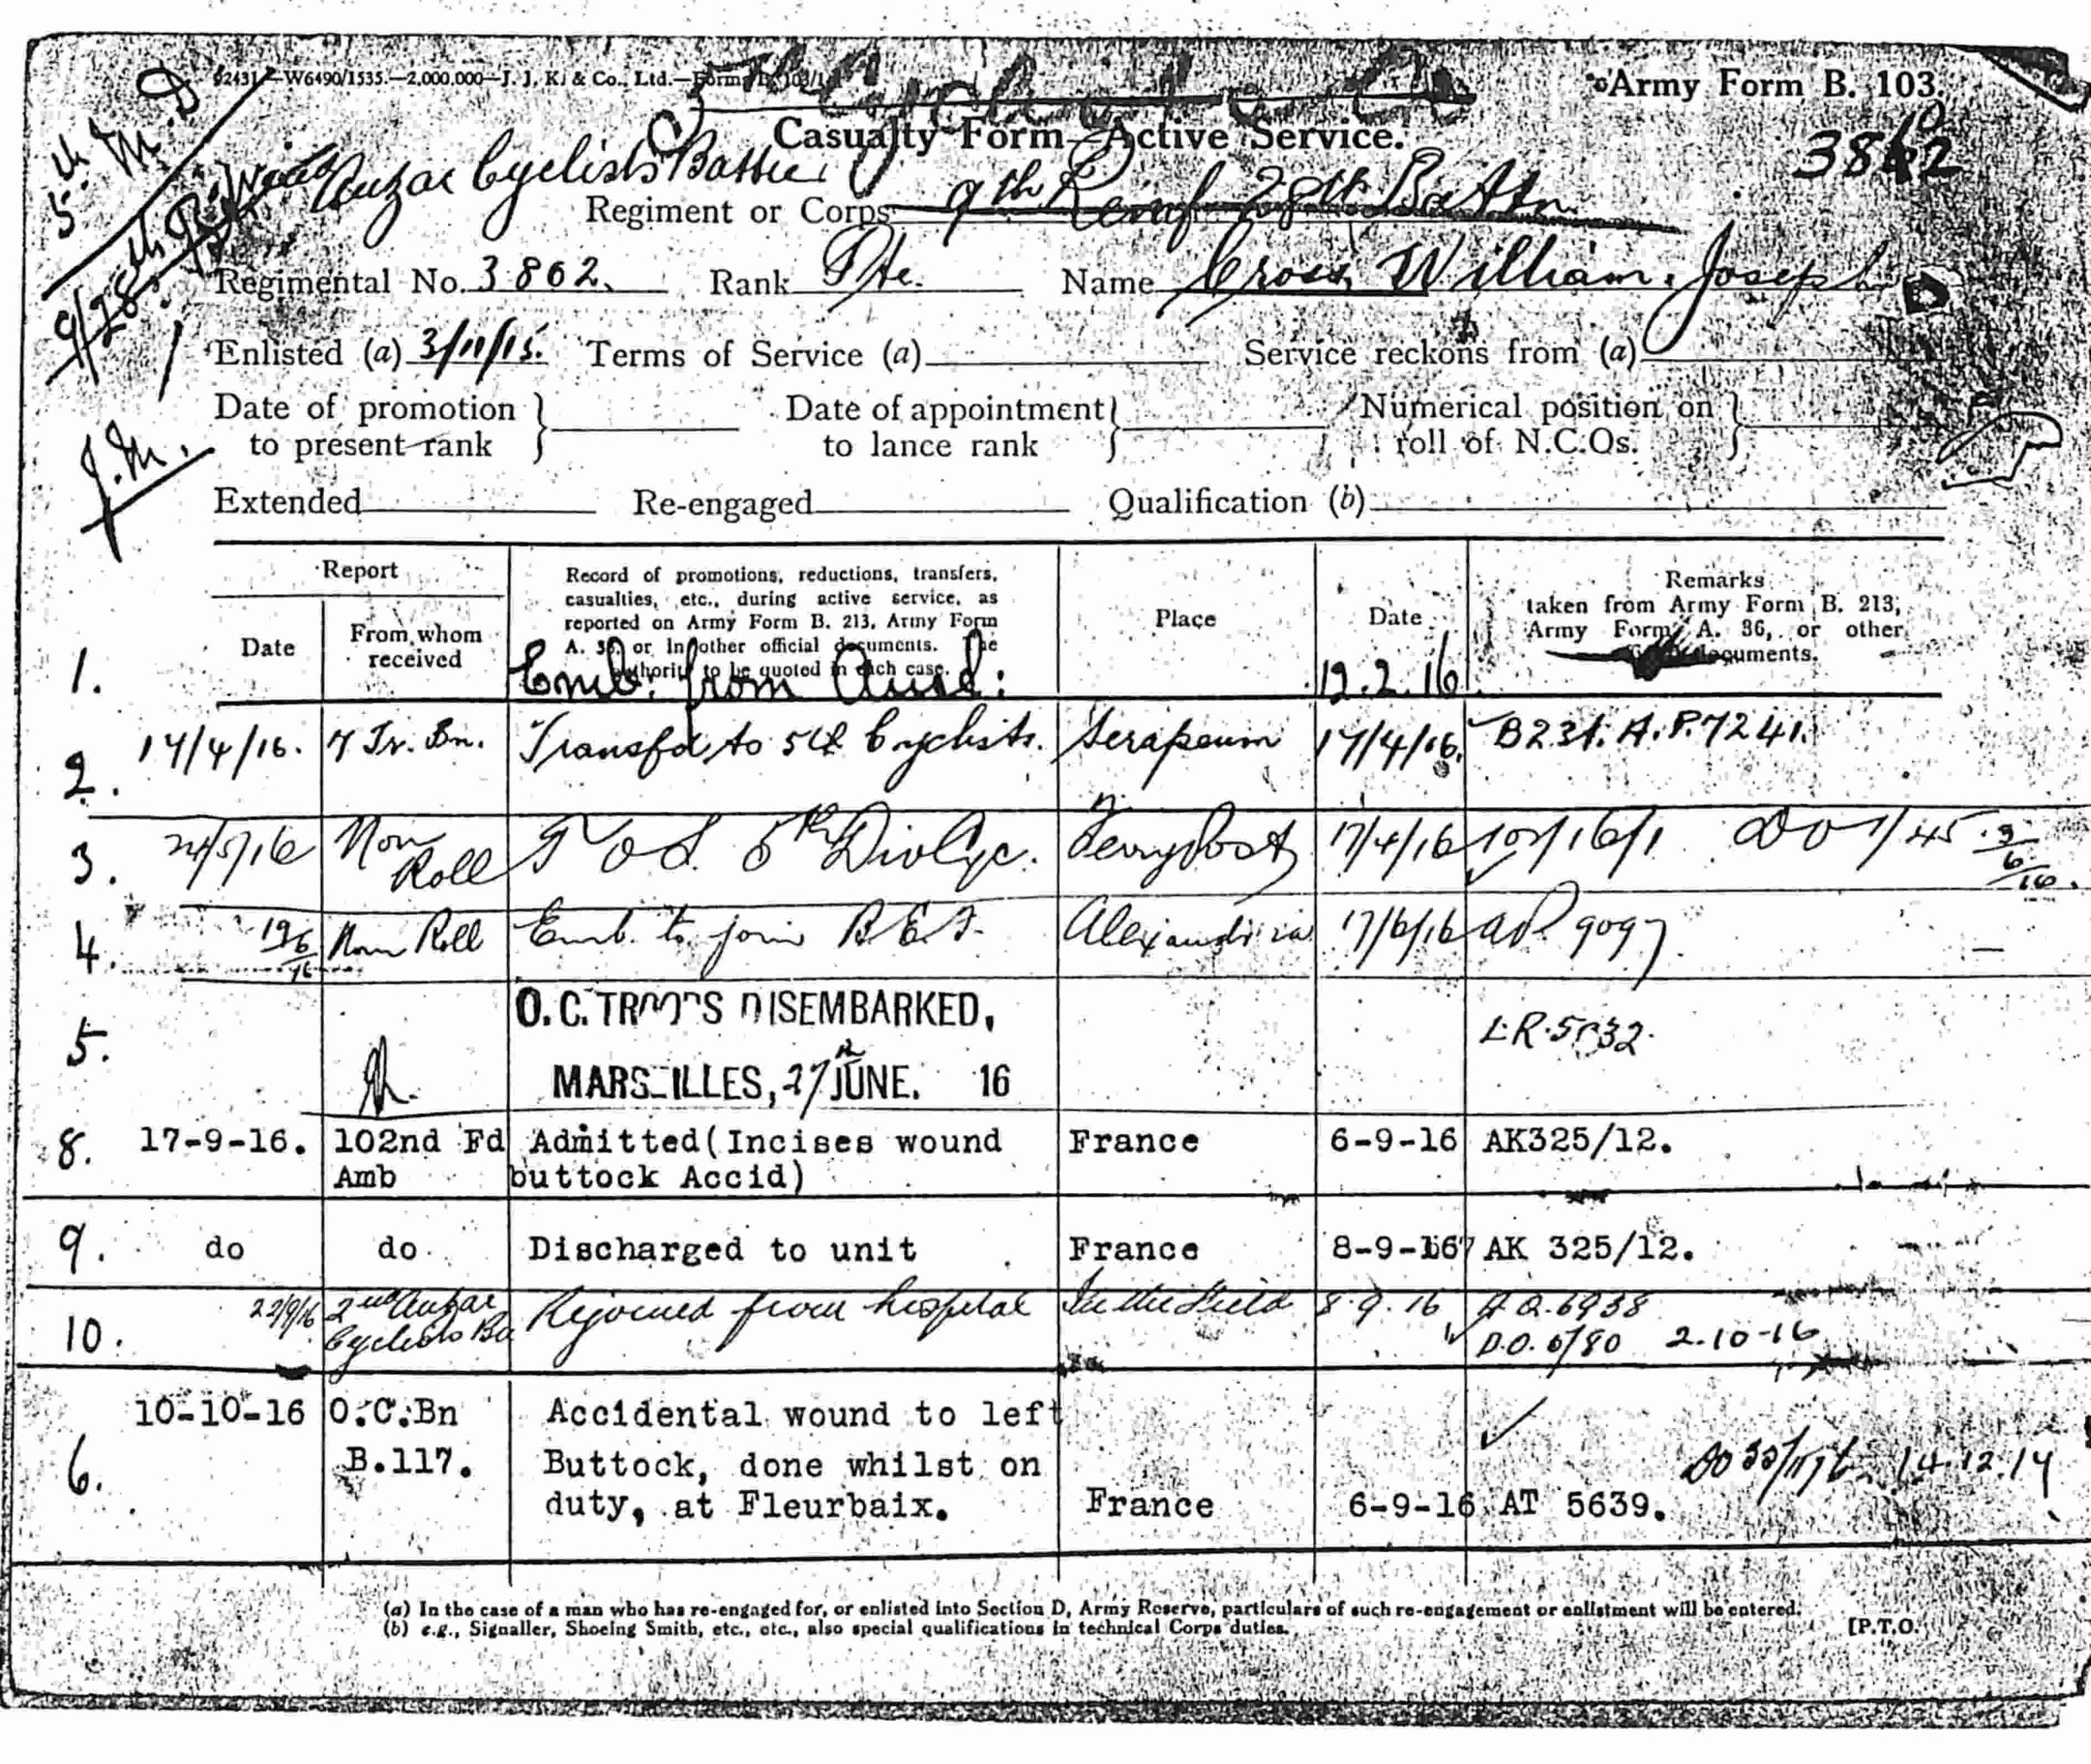 W6490/1535.—2,000,000—J. J. K. & Co., Ltd.—Form
Army Form B. 103.
Casualty Form—Active Service.
3862
5th M.D
Anzac Cyclists Battn
Regiment or Corps 9th Reinf 28th Battn
Regimental No. 3862. Rank Pte. Name Cross, William, Joseph
Enlisted (a) 3/11/15. Terms of Service (a) Service reckons from (a)
Date of promotion to present rank } Date of appointment to lance rank } Numerical position on roll of N.C.Os. }
J.M.
Extended Re-engaged Qualification (b)
Report
Date
From whom received
Record of promotions, reductions, transfers,
casualties, etc., during active service, as
reported on Army Form B. 213, Army Form
A. 36, or in other official documents. The
authority to be quoted in each case.
Place
Date
Remarks
taken from Army Form B. 213,
Army Form A. 36, or other
documents.
1. Emb. from Aust: 12.2.16
2. 17/4/16. 7 Tr. Bn. Transfd to 5th Cyclists. Serapeum 17/4/16. B231. A.P.7241.
3. 24/5/16 Nom Roll T O S. 5th Div Cyc. Ferry Post 17/4/16 DO 1/45 3/6/16.
4. 19/6/16 Nom Roll Emb. to join B.E.F. Alexandria 17/6/16 9097
5. O.C. TROOPS DISEMBARKED,
MARSEILLES, 27 JUNE. 16
8. 17-9-16. 102nd Fd Admitted(Incises wound France 6-9-16 AK325/12.
Amb buttock Accid)
9. do do Discharged to unit France 8-9-16 AK 325/12.
10. 22/9/16 2nd Anzac Rejoined from hospital In the Field 8.9.16 A Q.6938
Cyclists Ba D.O. 6/80 2-10-16
6. 10-10-16 O.C.Bn Accidental wound to left
B.117. Buttock, done whilst on 14.12.17
duty, at Fleurbaix. France 6-9-16 AT 5639.
(a) In the case of a man who has re-engaged for, or enlisted into Section D, Army Reserve, particulars of such re-engagement or enlistment will be entered.
(b) e.g., Signaller, Shoeing Smith, etc., etc., also special qualifications in technical Corps duties.
[P.T.O.